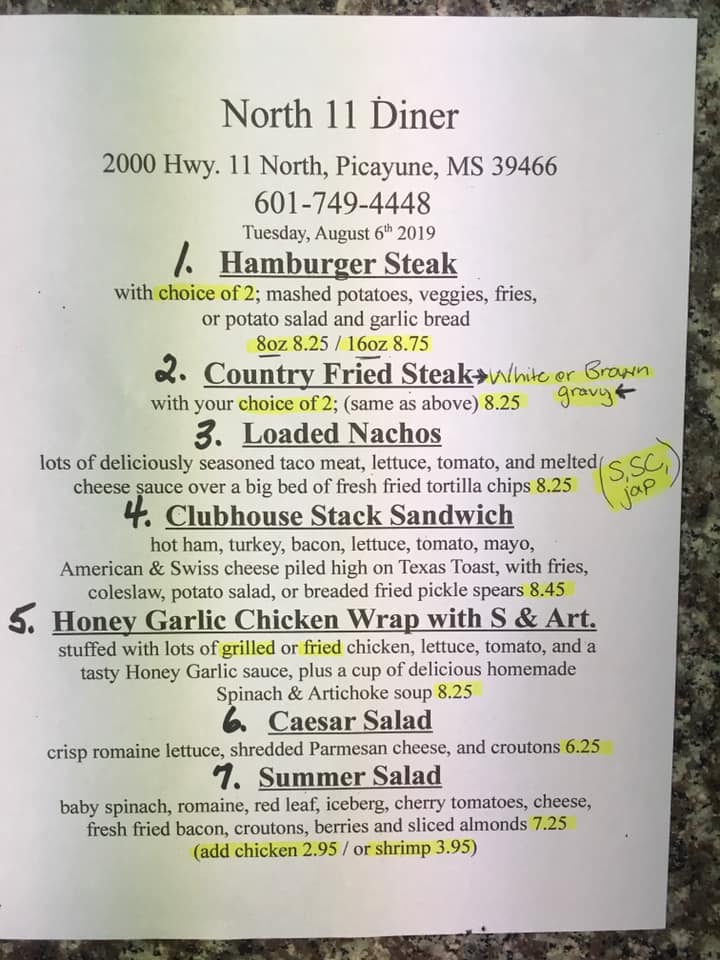 North 11 Diner
2000 Hwy. 11 North, Picayune, MS 39466
601-749-4448
Tuesday, August 6th 2019
1. Hamburger Steak
with choice of 2; mashed potatoes, veggies, fries,
or potato salad and garlic bread
8oz 8.25 / 16oz 8.75
2. Country Fried Steak→White or Brown
gravy←
with your choice of 2; (same as above) 8.25
3. Loaded Nachos
lots of deliciously seasoned taco meat, lettuce, tomato, and melted
cheese sauce over a big bed of fresh fried tortilla chips 8.25
(S, SC,
jap)
4. Clubhouse Stack Sandwich
hot ham, turkey, bacon, lettuce, tomato, mayo,
American & Swiss cheese piled high on Texas Toast, with fries,
coleslaw, potato salad, or breaded fried pickle spears 8.45
5. Honey Garlic Chicken Wrap with S & Art.
stuffed with lots of grilled or fried chicken, lettuce, tomato, and a
tasty Honey Garlic sauce, plus a cup of delicious homemade
Spinach & Artichoke soup 8.25
6. Caesar Salad
crisp romaine lettuce, shredded Parmesan cheese, and croutons 6.25
7. Summer Salad
baby spinach, romaine, red leaf, iceberg, cherry tomatoes, cheese,
fresh fried bacon, croutons, berries and sliced almonds 7.25
(add chicken 2.95 / or shrimp 3.95)